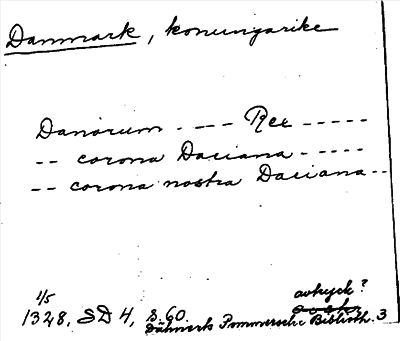 Danmark, konungarike
Danorum - - - - Rex - - - - -
-- corona Daciana - - - - -
-- corona nostra Daciana - -
avtryck?
1/5
1328, SD 4, s. 60.
Dähnerts Pommersche Biblioth. 3